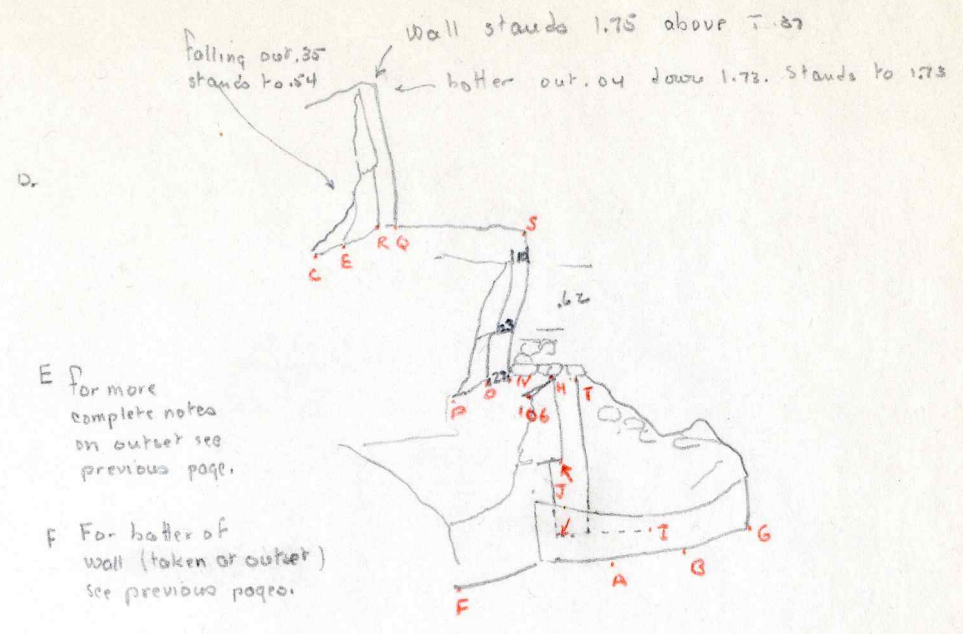 wall stands 1.75 above T.37
falling out .35
stands to .54
batter out .04 down 1.73. Stands to 1.73
D.
S
R Q
E
C
.62
23
22
N
H
T
O
P
106
E for more
complete notes
on outset see
previous page.
J
I
G
B
A
F For batter of
wall (taken at outset)
see previous pages.
F